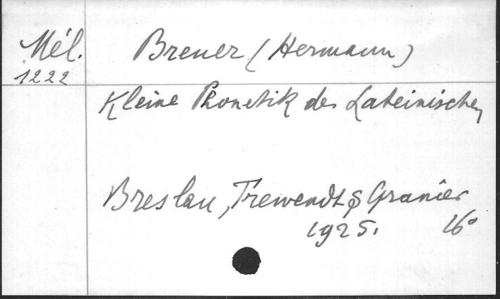 Mél.
1222
Breuer (Hermann)
Kleine Phonetik des Lateinischen
Breslau, Trewendt & Granier
1925. 16°